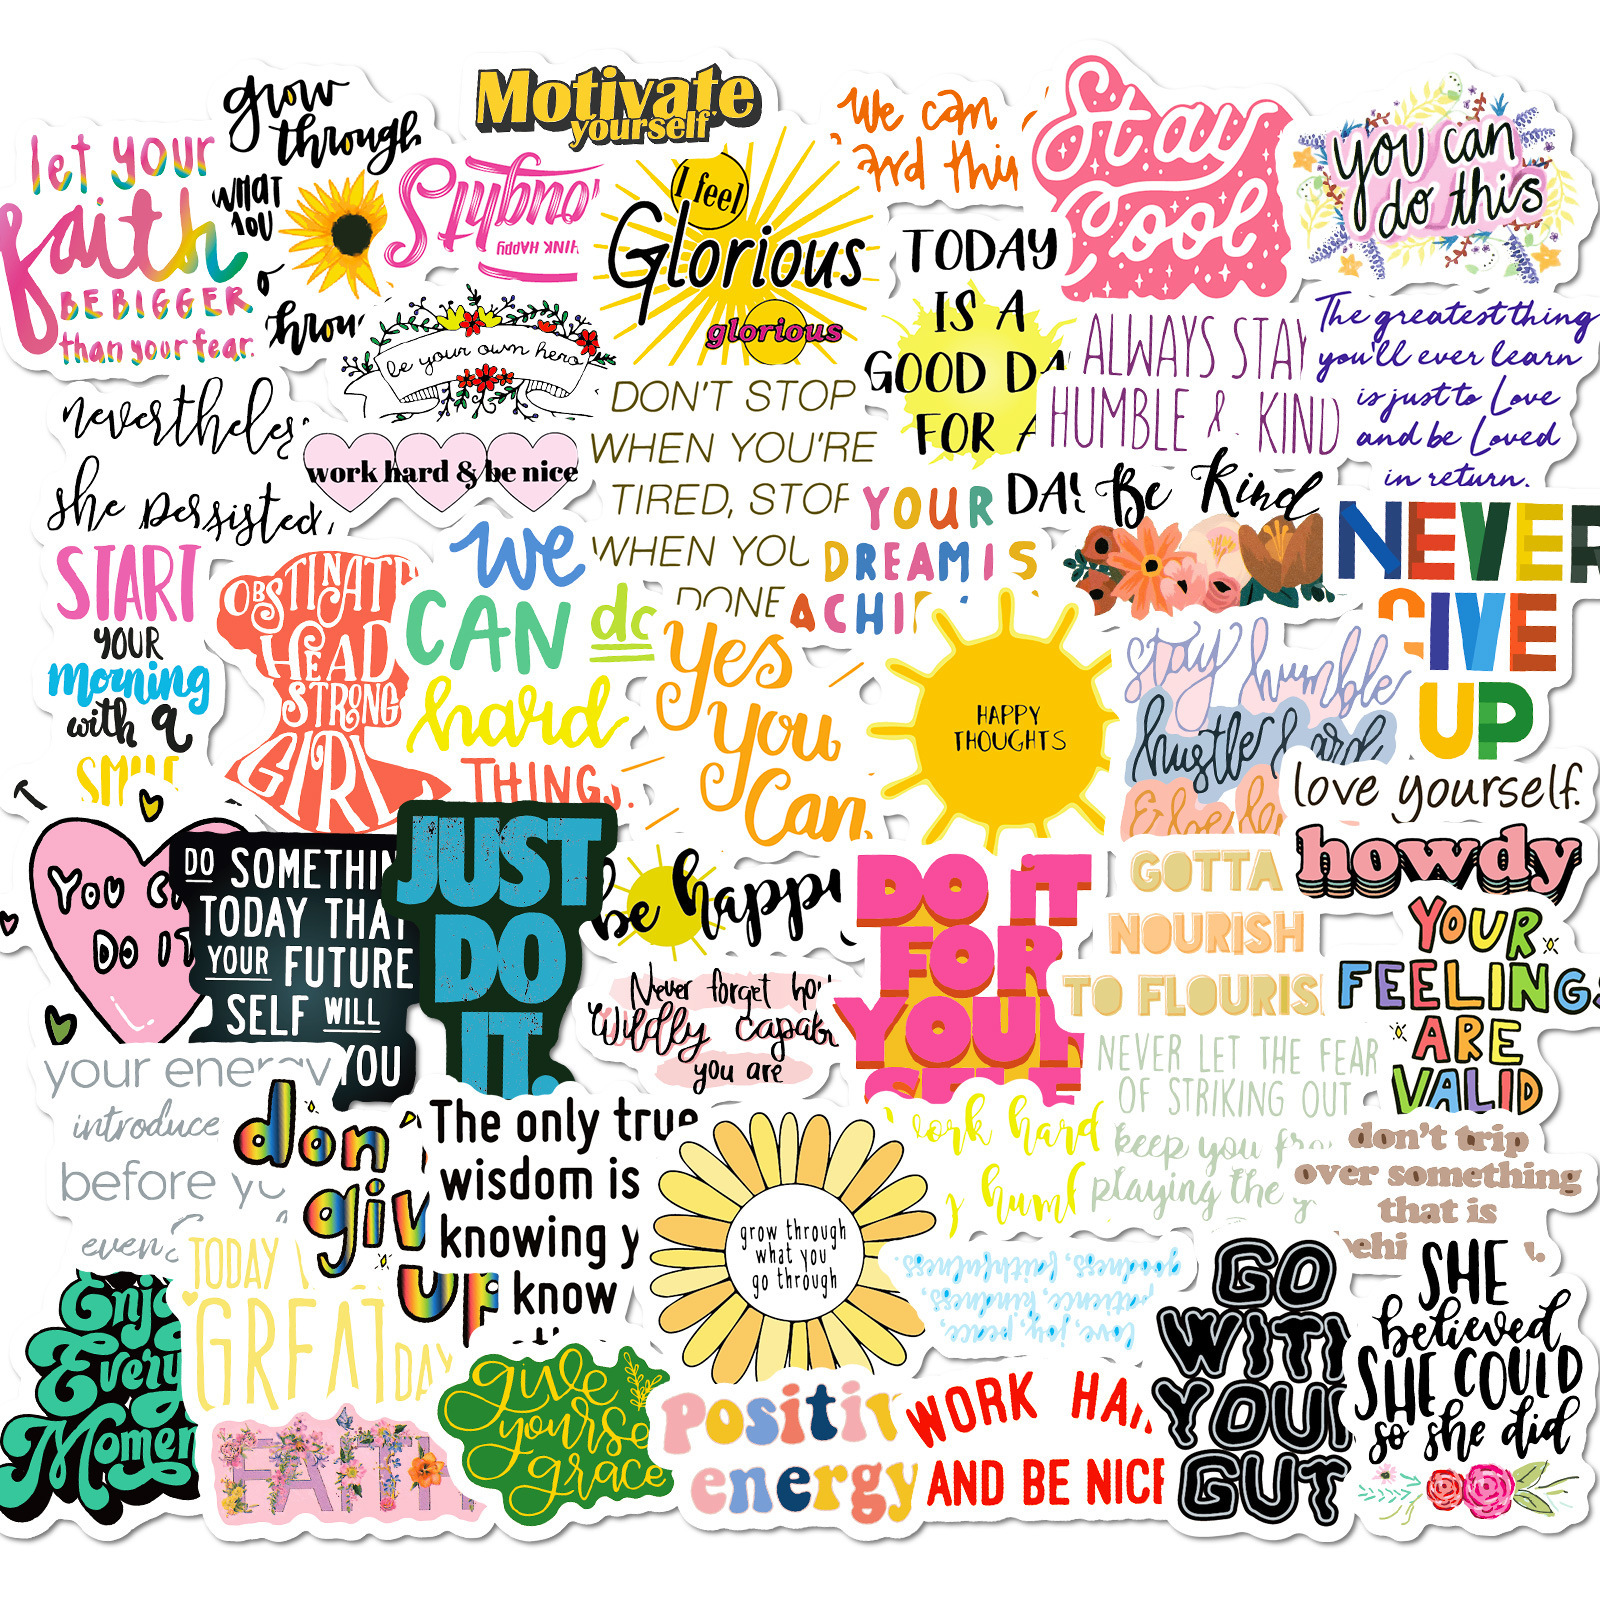 let your
faith
BE BIGGER
than your fear.
grow
through
WHAT
YOU
Motivate
yourself
I feel
Glorious
glorious
We can
Stay
Cool
you can
do this
be your own hero
TODAY
IS A
GOOD
FOR A
ALWAYS STAY
HUMBLE & KIND
The greatest thing
you'll ever learn
is just to Love
and be Loved
in return.
nevertheless
she persisted
work hard & be nice
DON'T STOP
WHEN YOU'RE
TIRED, STOP
WHEN YOU
DONE
YOUR
DREAM IS
Be Kind
NEVER
GIVE
UP
START
YOUR
Morning
with a
OBSTINATE
HEAD
STRONG
GIRL
we
CAN do
hard
THINGS.
Yes
you
Can
HAPPY
THOUGHTS
stay humble
hustle hard
love yourself.
howdy
YOU
DO IT
DO SOMETHIN
TODAY THAT
YOUR FUTURE
SELF WILL
YOU
JUST
DO
IT.
be happy
Never forget
Wildly
you are
DO IT
FOR
GOTTA
NOURISH
TO FLOURIS
YOUR
FEELINGS
ARE
VALID
your energy
introduce
before
don
giv
up
The only true
wisdom is
knowing
know
grow through
what you
go through
work hard
NEVER LET THE FEAR
OF STRIKING OUT
keep you
playing the
don't trip
over something
that is
Enjoy
Every
Momen
TODAY
GREAT
DAY
FAITH
give
yourse
grace
goodness, faithfulness
patience, kindness
love, joy, peace,
positiv
energy
WORK HA
AND BE NICE
GO
WITH
YOUR
GUT
SHE
believed
SHE COULD
so she did